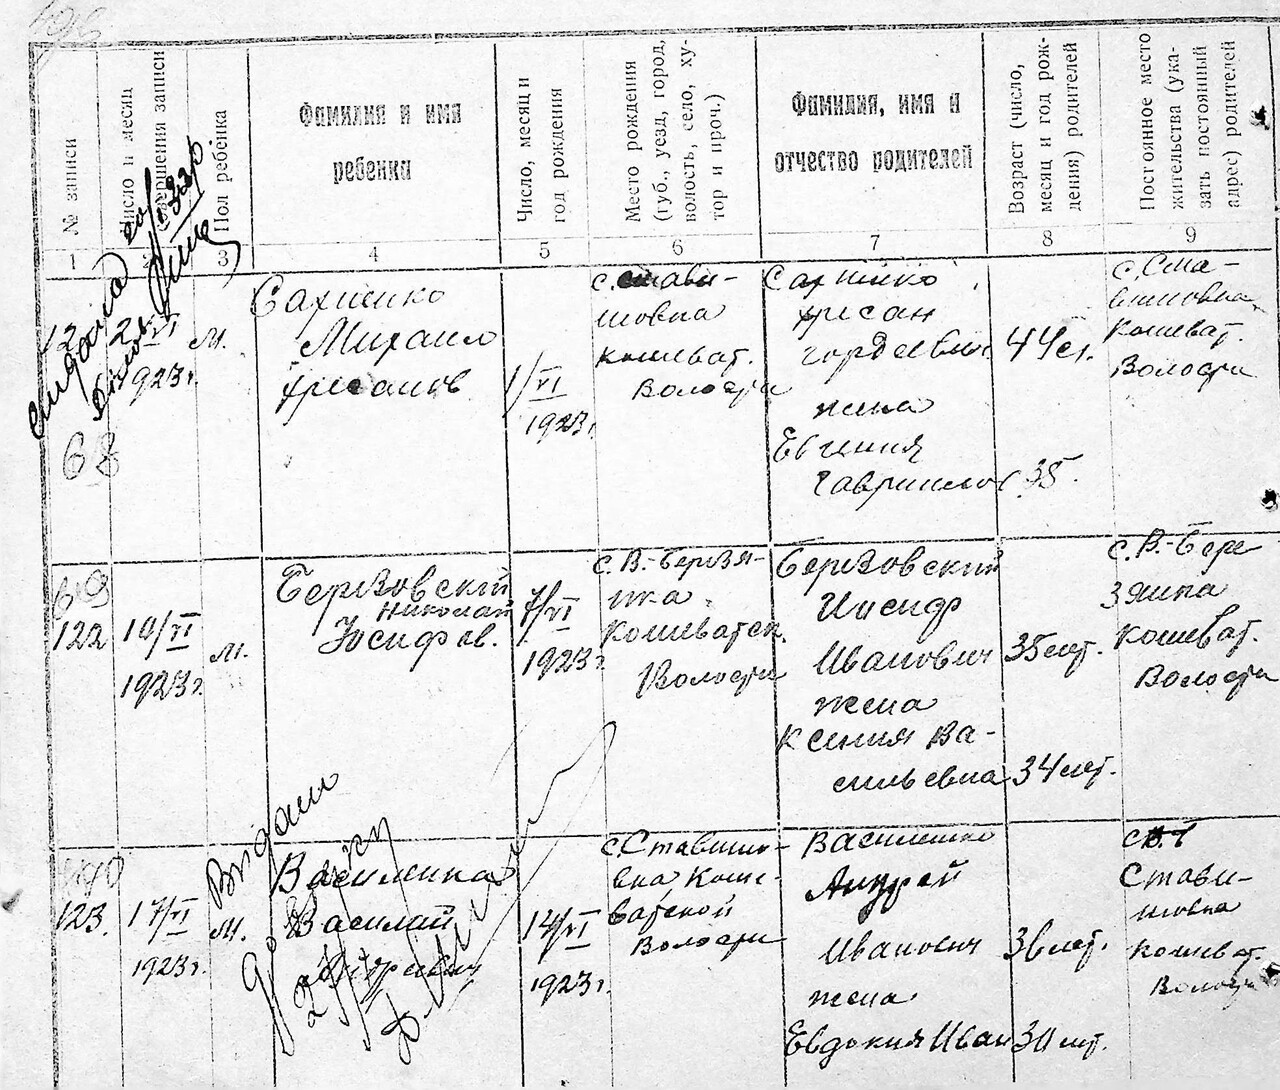 № записи
Число и месяц
совершения записи
Пол ребенка
Фамилия и имя
ребенка
Число, месяц и
год рождения
Место рождения
(губ., уезд, город,
волость, село, ху-
тор и проч.)
Фамилия, имя и
отчество родителей
Возраст (число,
месяц и год рож-
дения) родителей
Постоянное место
жительства (ука-
зать постоянный
адрес) родителей
1
3
4
5
6
7
8
9
2/VI
923г.
м.
68
Михаило
1/VI
1923г.
с. Стави-
шовка
Кошеват.
Волости
гордеевич
жена
Евгения
гаврилов
44 л.
35.
с. Ста-
вишовка
Кошеват.
Волости
69
122
10/VI
1923г.
м.
Березовский
Николай
Иосифов.
7/VI
1923г.
с. В.-Березя-
нка
Кошеватск.
Волости
Березовский
Иосиф
Иванович
жена
Ксения Ва-
сильевна
35 лет.
34 лет.
с. В.-Бере
зянка
Кошеват.
Волости
123.
17/VI
1923г.
м.
Видано
Василенко
Василий
Андреевич
14/VI
1923г.
с. Ставишо-
вка Коше-
ватской
Волости
Василенко
Андрей
Иванович
жена
Евдокия Иван
36 лет.
30 лет.
Стави-
шовка
Кошеват.
Волости